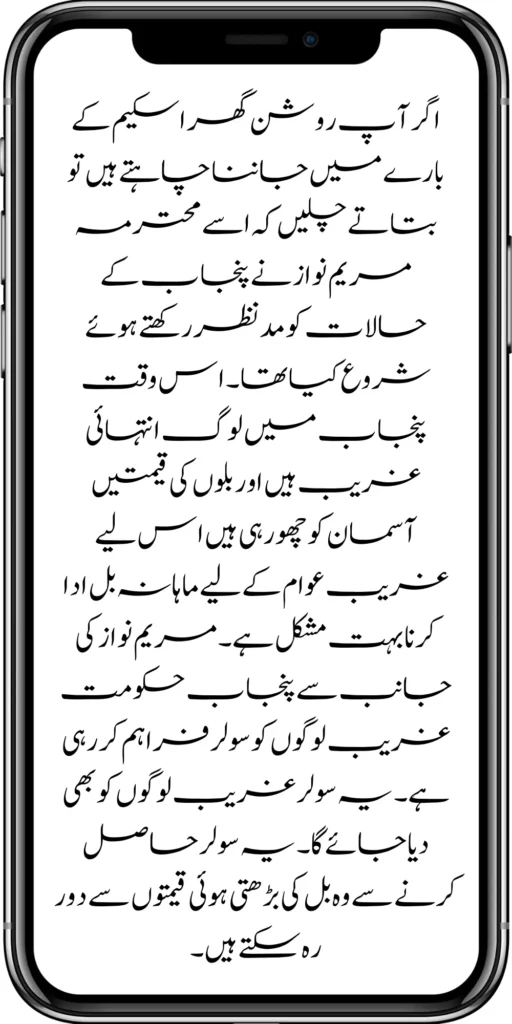 اگر آپ روشن گھر اسکیم کے
بارے میں جاننا چاہتے ہیں تو
بتاتے چلیں کہ اسے محترمہ
مریم نواز نے پنجاب کے
حالات کو مد نظر رکھتے ہوئے
شروع کیا تھا۔ اس وقت
پنجاب میں لوگ انتہائی
غریب ہیں اور بلوں کی قیمتیں
آسمان کو چھو رہی ہیں اس لیے
غریب عوام کے لیے ماہانہ بل ادا
کرنا بہت مشکل ہے۔ مریم نواز کی
جانب سے پنجاب حکومت
غریب لوگوں کو سولر فراہم کر رہی
ہے۔ یہ سولر غریب لوگوں کو بھی
دیا جائے گا۔ یہ سولر حاصل
کرنے سے وہ بل کی بڑھتی ہوئی قیمتوں سے دور
رہ سکتے ہیں۔